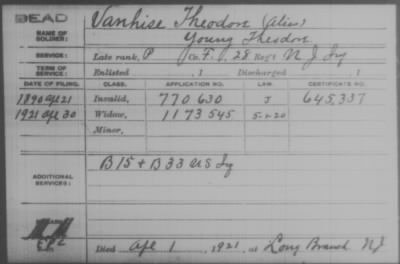 DEAD
Vanhise Theodore (alias)
NAME OF SOLDIER:
Young Theodore
SERVICE:
Late rank, P Co. F, 28 Reg't N J Inf
TERM OF SERVICE:
Enlisted , 1 Discharged , 1
DATE OF FILING. CLASS. APPLICATION NO. LAW. CERTIFICATE NO.
1890 Apl 21 Invalid, 770 630 J 645,337
1921 Apl 30 Widow, 1173 545 5-1-20
Minor,
ADDITIONAL SERVICES:
B 15 + B 33 U S Inf
Died Apl 1, 1921, at Long Branch N J